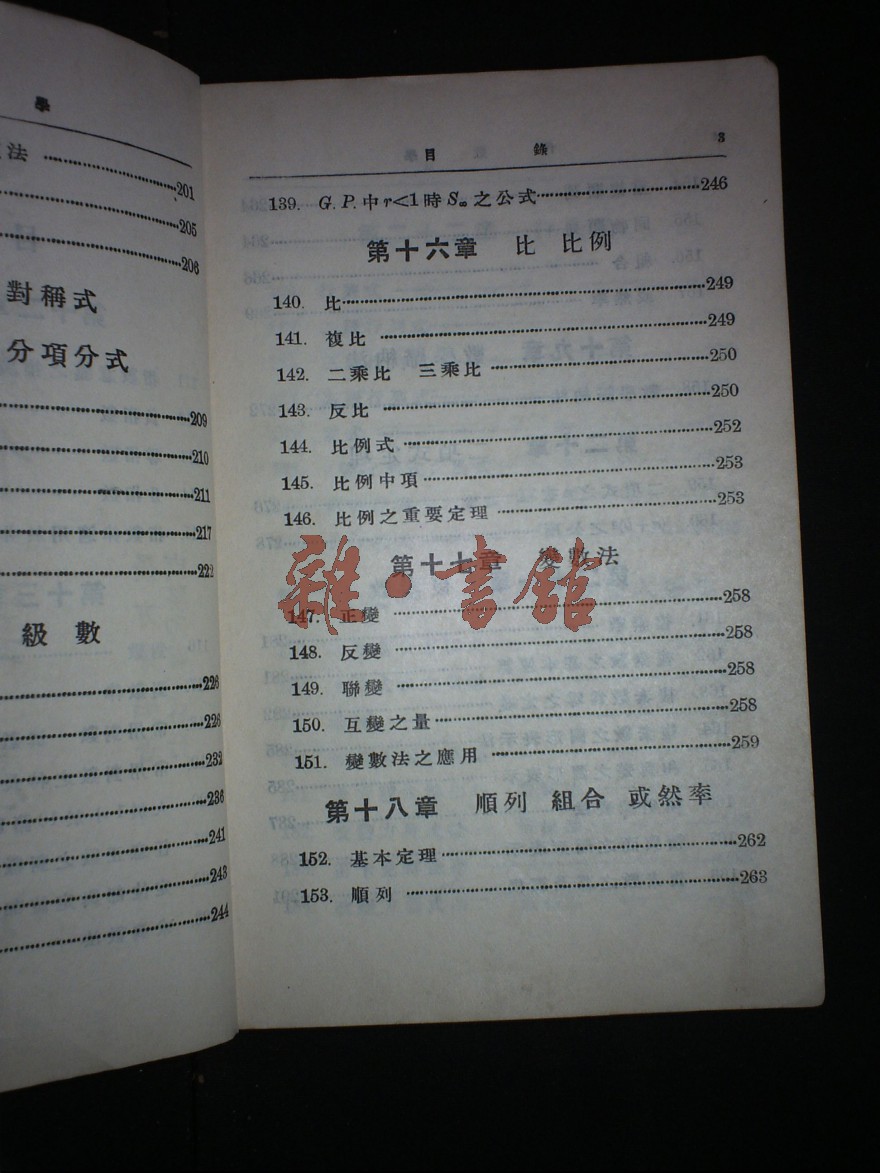 學
法 ……201
……205
……206
對稱式
分項分式
……209
……210
……211
……217
……222
級數
……226
……226
……232
……236
……241
……243
……244
目 錄 3
139. G. P. 中 r<1 時 S∞ 之公式……246
第十六章 比 比例
140. 比……249
141. 複比……249
142. 二乘比 三乘比……250
143. 反比……250
144. 比例式……252
145. 比例中項……253
146. 比例之重要定理……253
第十七章 變數法
147. 正變……258
148. 反變……258
149. 聯變……258
150. 互變之量……258
151. 變數法之應用……259
第十八章 順列 組合 或然率
152. 基本定理……262
153. 順列……263
雜·書館